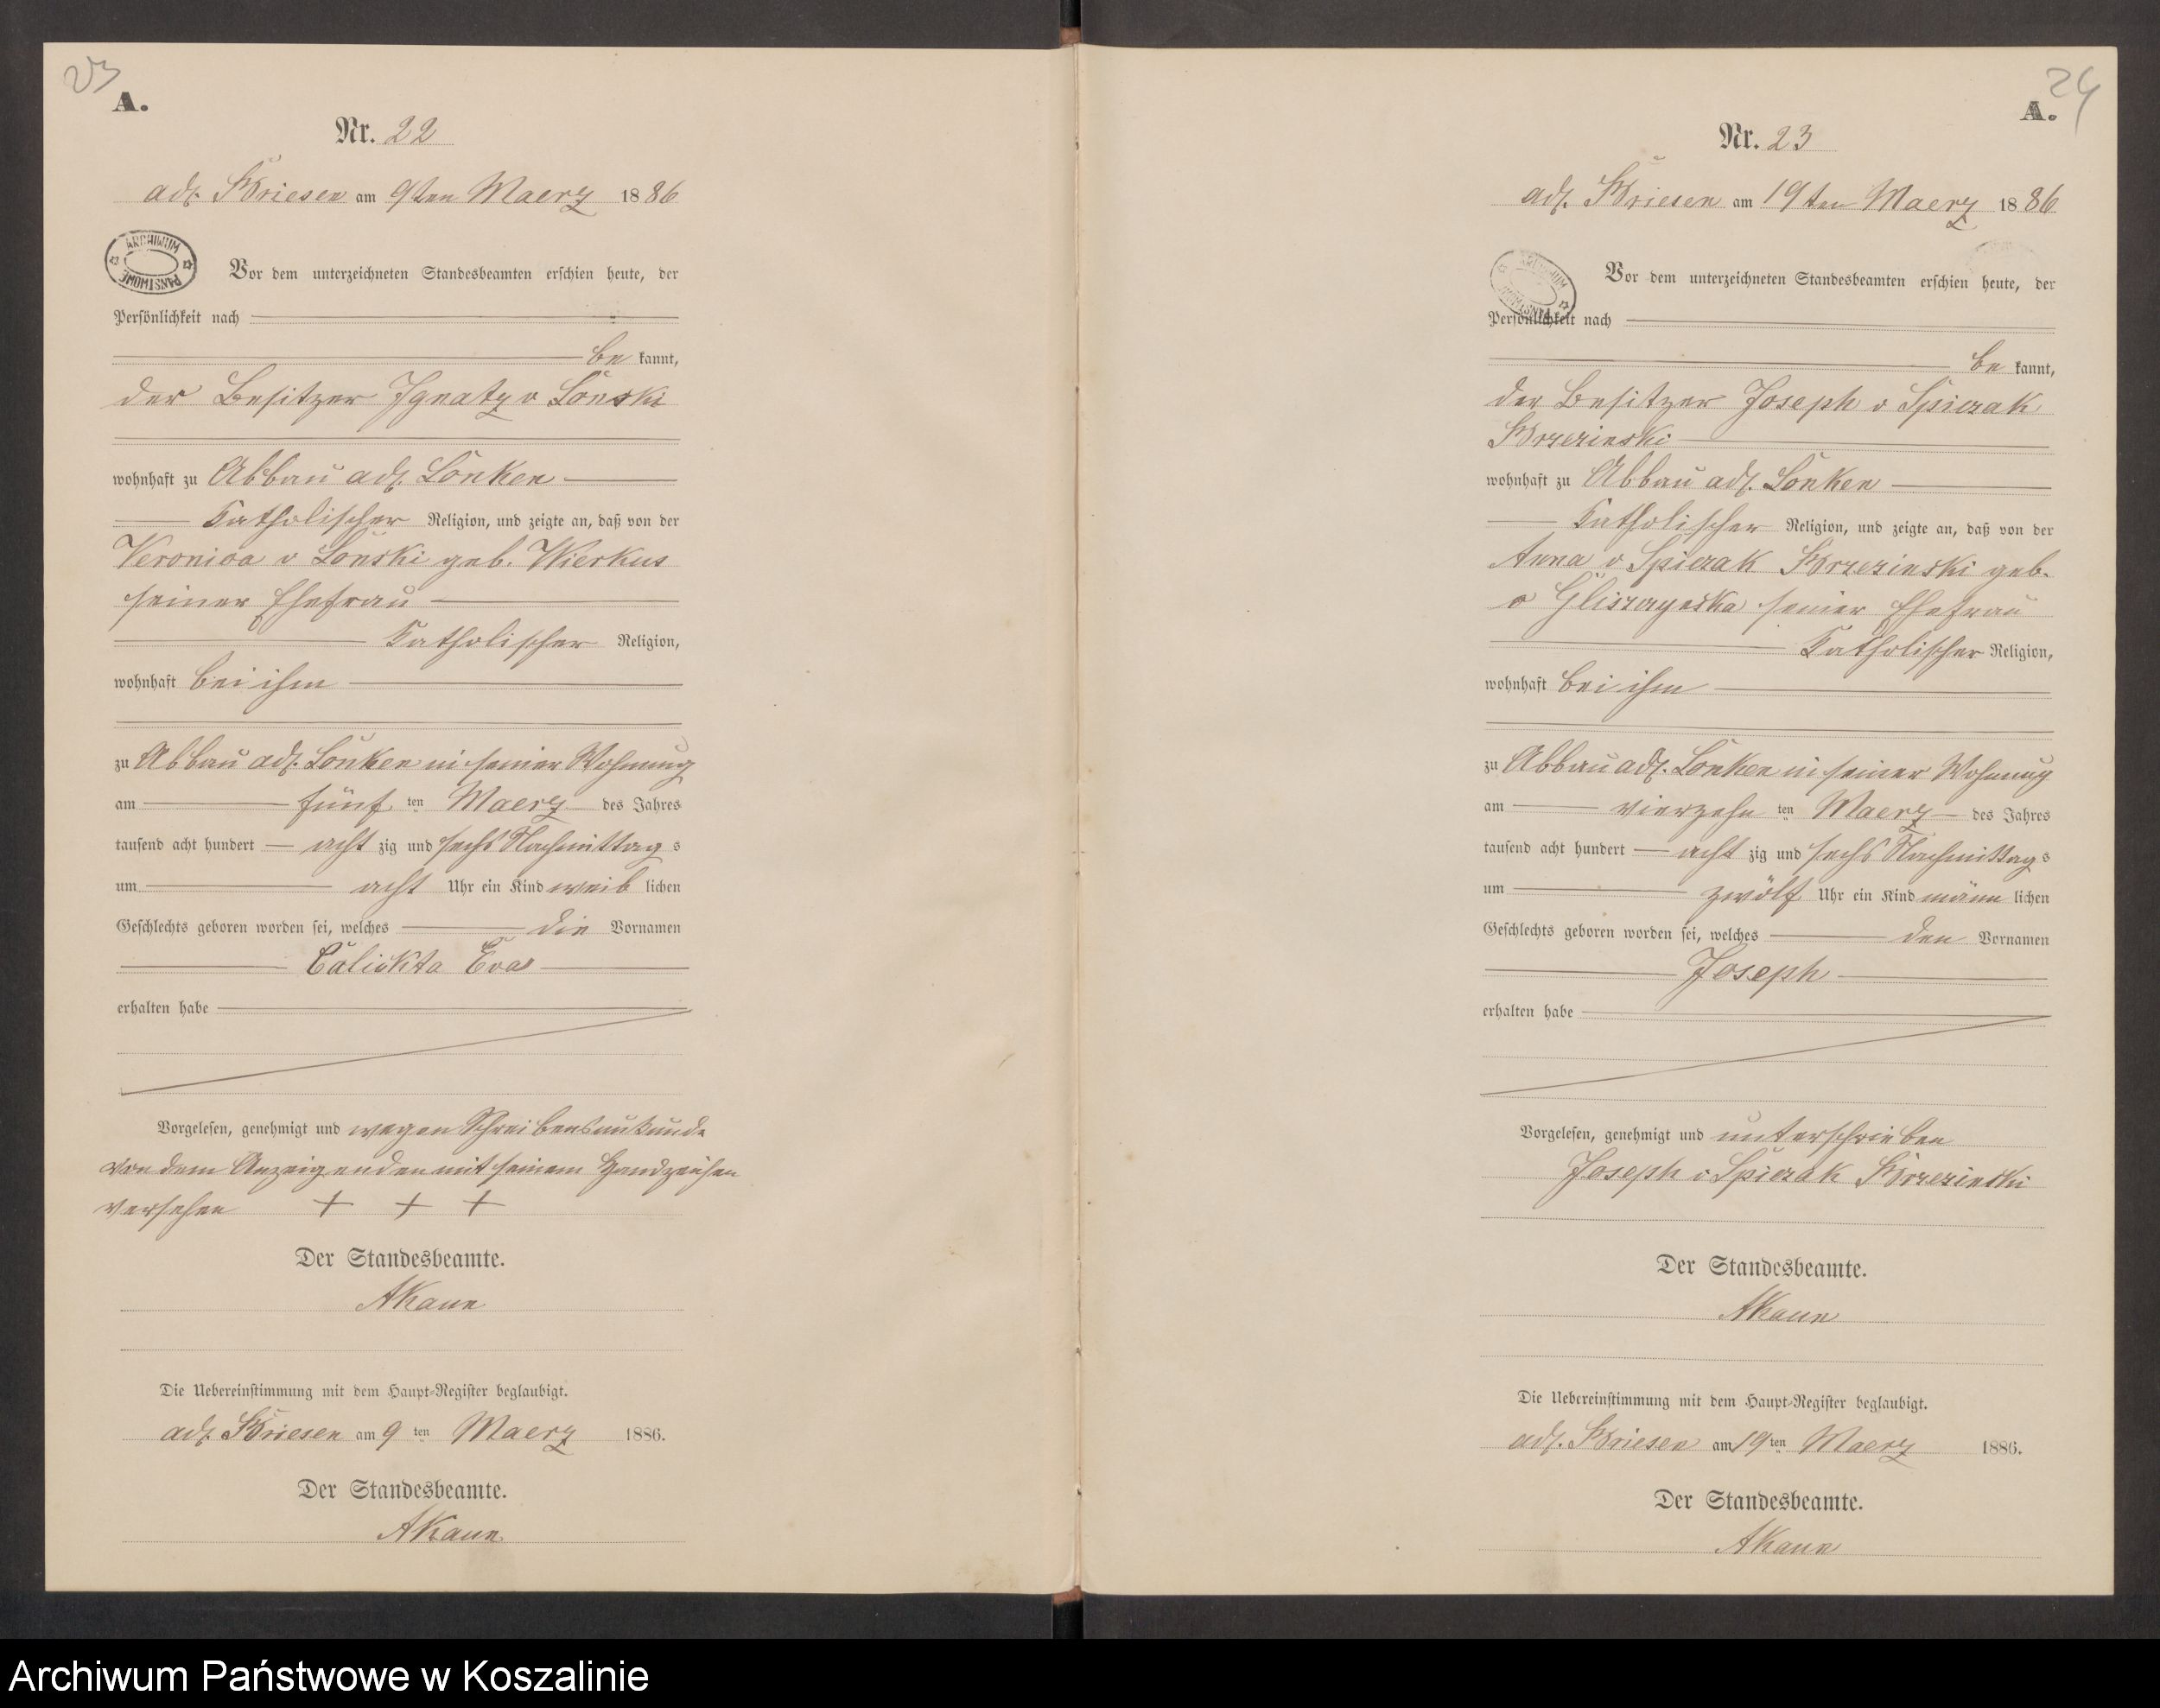 23
A.
Nr. 22
adl. Briesen am 9ten Maerz 1886
ARCHIWUM PAŃSTWOWE
Vor dem unterzeichneten Standesbeamten erschien heute, der
Persönlichkeit nach
be kannt,
der Besitzer Ignatz v Lonski
wohnhaft zu Abbau adl. Lonken
Katholischer Religion, und zeigte an, daß von der
Veronica v Lonski geb. Wierkus
seiner Ehefrau
Katholischer Religion,
wohnhaft bei ihm
zu Abbau adl. Lonken in seiner Wohnung
am fünf ten Maerz des Jahres
tausend acht hundert acht zig und sechs Nachmittag s
um acht Uhr ein Kind weib lichen
Geschlechts geboren worden sei, welches die Vornamen
Calickta Eva
erhalten habe
Vorgelesen, genehmigt und wegen Schreibensunkunde
von dem Anzeigenden mit seinem Handzeichen
versehen + + +
Der Standesbeamte.
AKaun
Die Uebereinstimmung mit dem Haupt-Register beglaubigt.
adl. Briesen am 9 ten Maerz 1886.
Der Standesbeamte.
AKaun
24
A.
Nr. 23
adl. Briesen am 19ten Maerz 1886
Vor dem unterzeichneten Standesbeamten erschien heute, der
Persönlichkeit nach
be kannt,
der Besitzer Joseph v Spiczak
Brzezinski
wohnhaft zu Abbau adl. Lonken
Katholischer Religion, und zeigte an, daß von der
Anna v Spiczak Brzezinski geb.
v Gliszczynska seiner Ehefrau
Katholischer Religion,
wohnhaft bei ihm
zu Abbau adl. Lonken in seiner Wohnung
am vierzehn ten Maerz des Jahres
tausend acht hundert acht zig und sechs Nachmittag s
um zwölf Uhr ein Kind männ lichen
Geschlechts geboren worden sei, welches den Vornamen
Joseph
erhalten habe
Vorgelesen, genehmigt und unterschrieben
Joseph v Spiczak Brzezinski
Der Standesbeamte.
AKaun
Die Uebereinstimmung mit dem Haupt-Register beglaubigt.
adl. Briesen am 19 ten Maerz 1886.
Der Standesbeamte.
AKaun
Archiwum Państwowe w Koszalinie